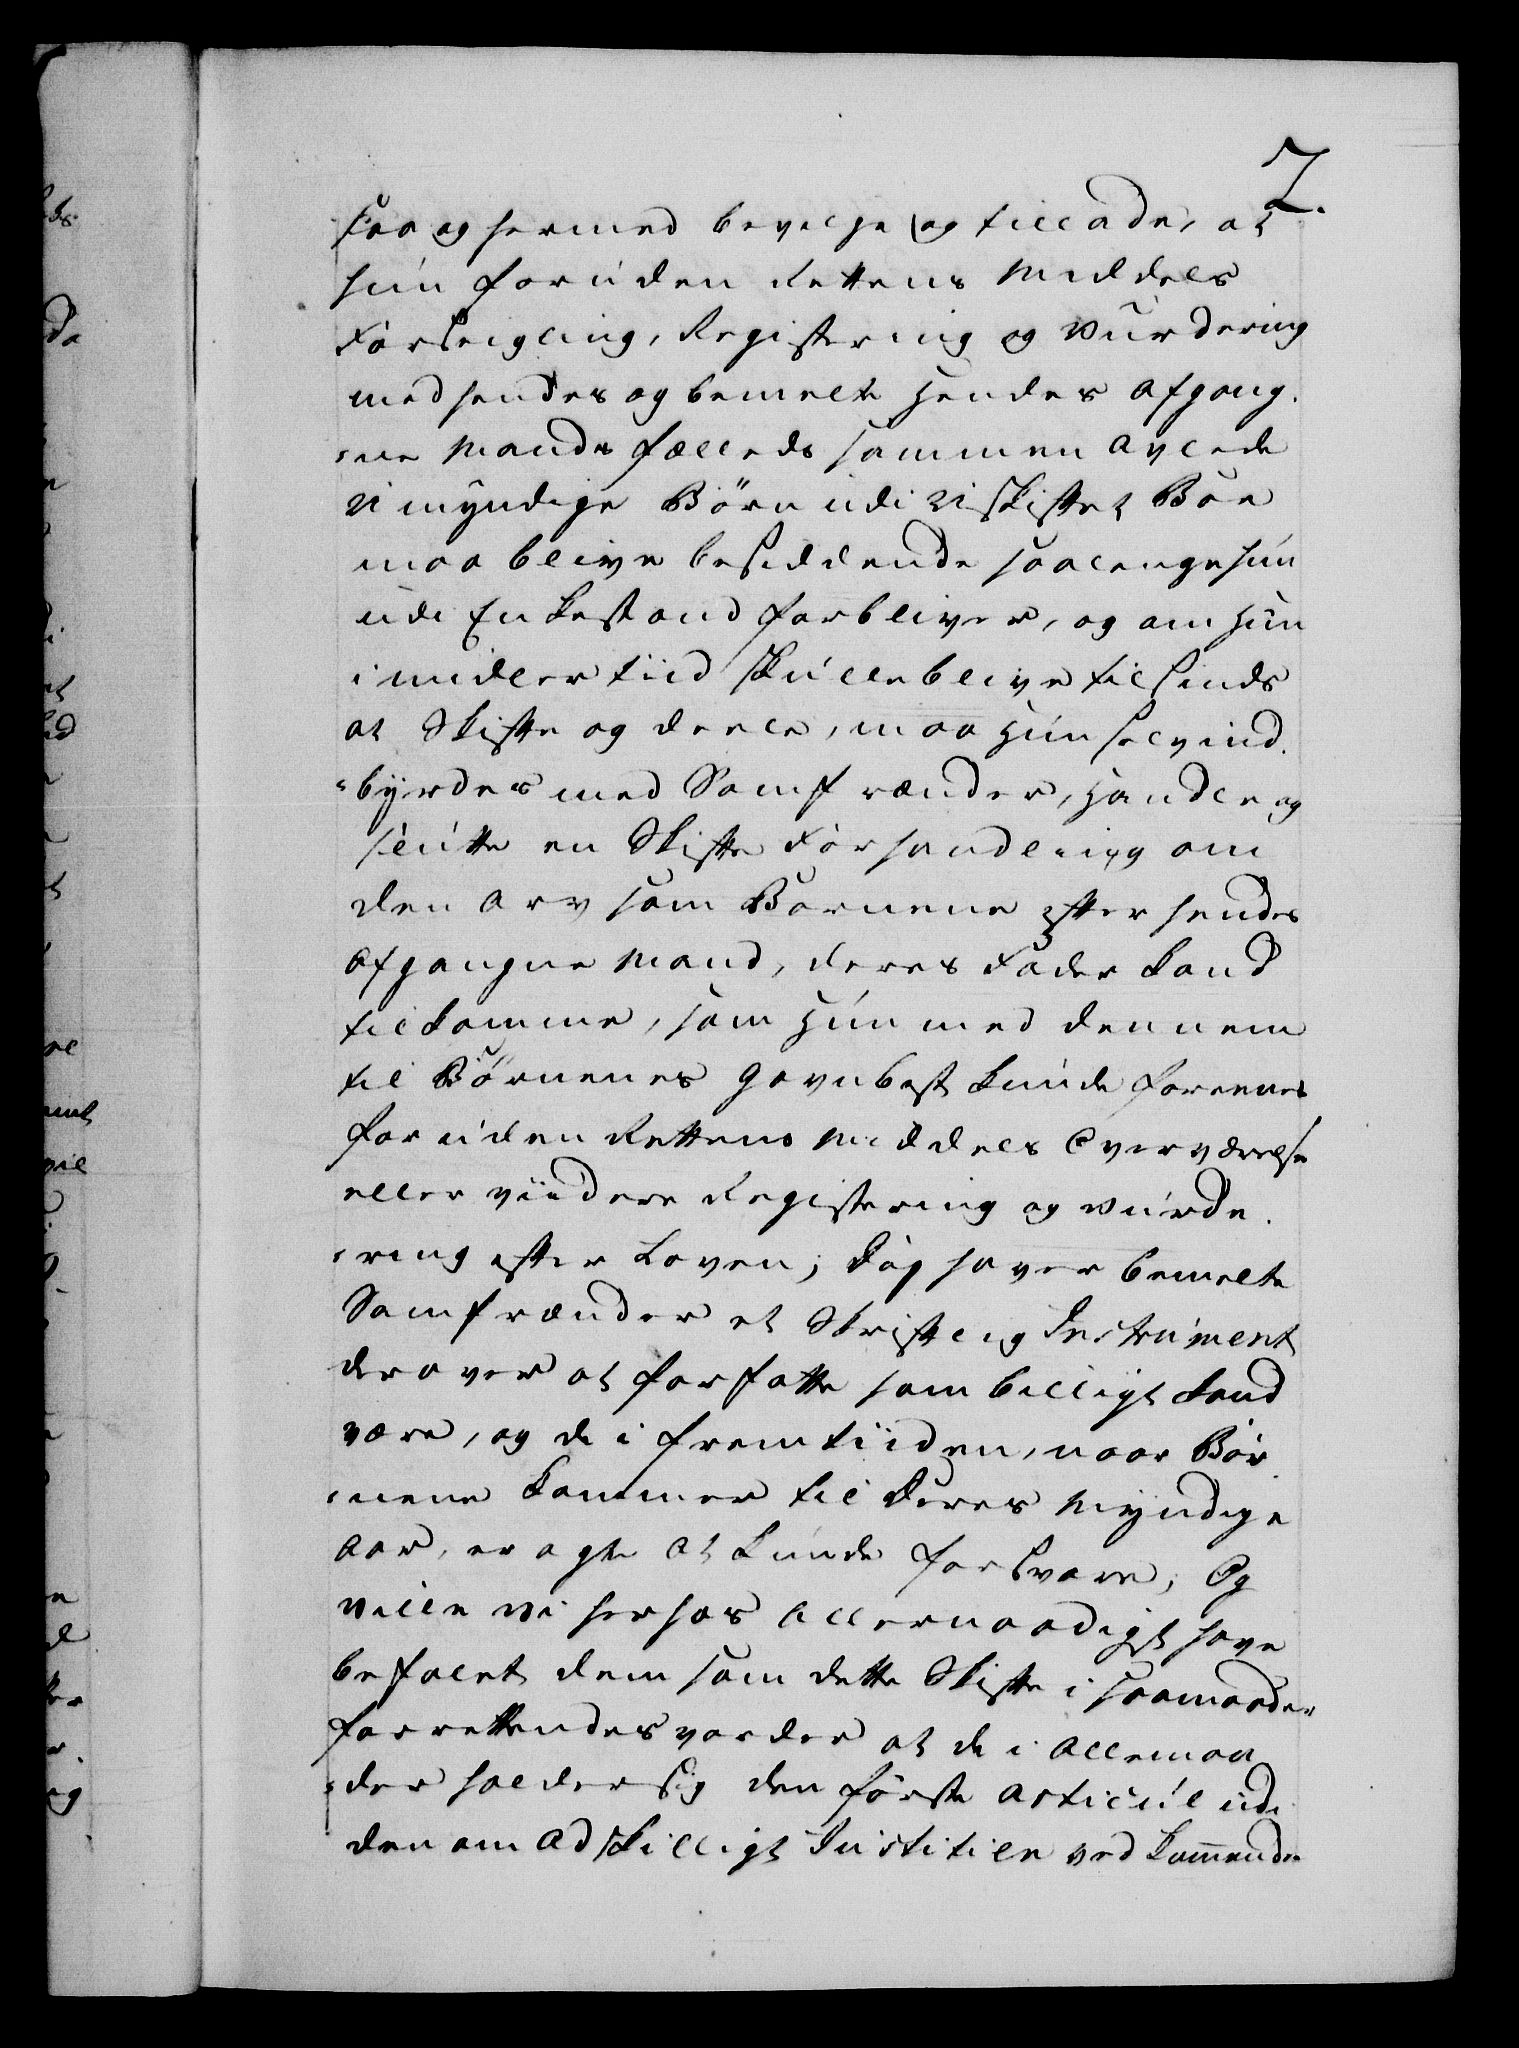 7.
saa og hermed bevilge og tillade, at
hun foruden Rettens Middels
Forseigling, Registering og Vurdering
med hendes og bemelte Hendes afgang-
-ne Mands fælleds sammen avlede
umyndige Börn udi uskiftet Boe
maa blive besiddende saalenge hun
udi Enkestand forbliver, og om Hun
imidlertiid skulle blive tilsinds
at Skifte og deele, maa Hun selv ind-
-byrdes med Samfrænder, Handle og
slutte en Skifte Forhandling om
den Arv som Börnene efter hendes
afgangne Mand, deres Fader kand
tilkomme, som Hun med dennem
til Börnenes Gavn best kunde foreenes
foruden Rettens Middels Overværelse
eller viidere Registering og Vurde-
-ring efter Loven; dog haver bemelte
Samfrænder et Skriftelig Instrument
derover at forfatte som billigt kand
være, og de i fremtiiden, naar Bör
-nene kommer til deres Myndige
Aar, eragte at kunde forsvare; Og
ville Vi herhos Allernaadigst have
befalet dem som dette Skifte i saamaader
forrettendes vorder at de i Allemaa
-der holder sig den förste Articul udi
den om Adskilligt Justitien vedkommende